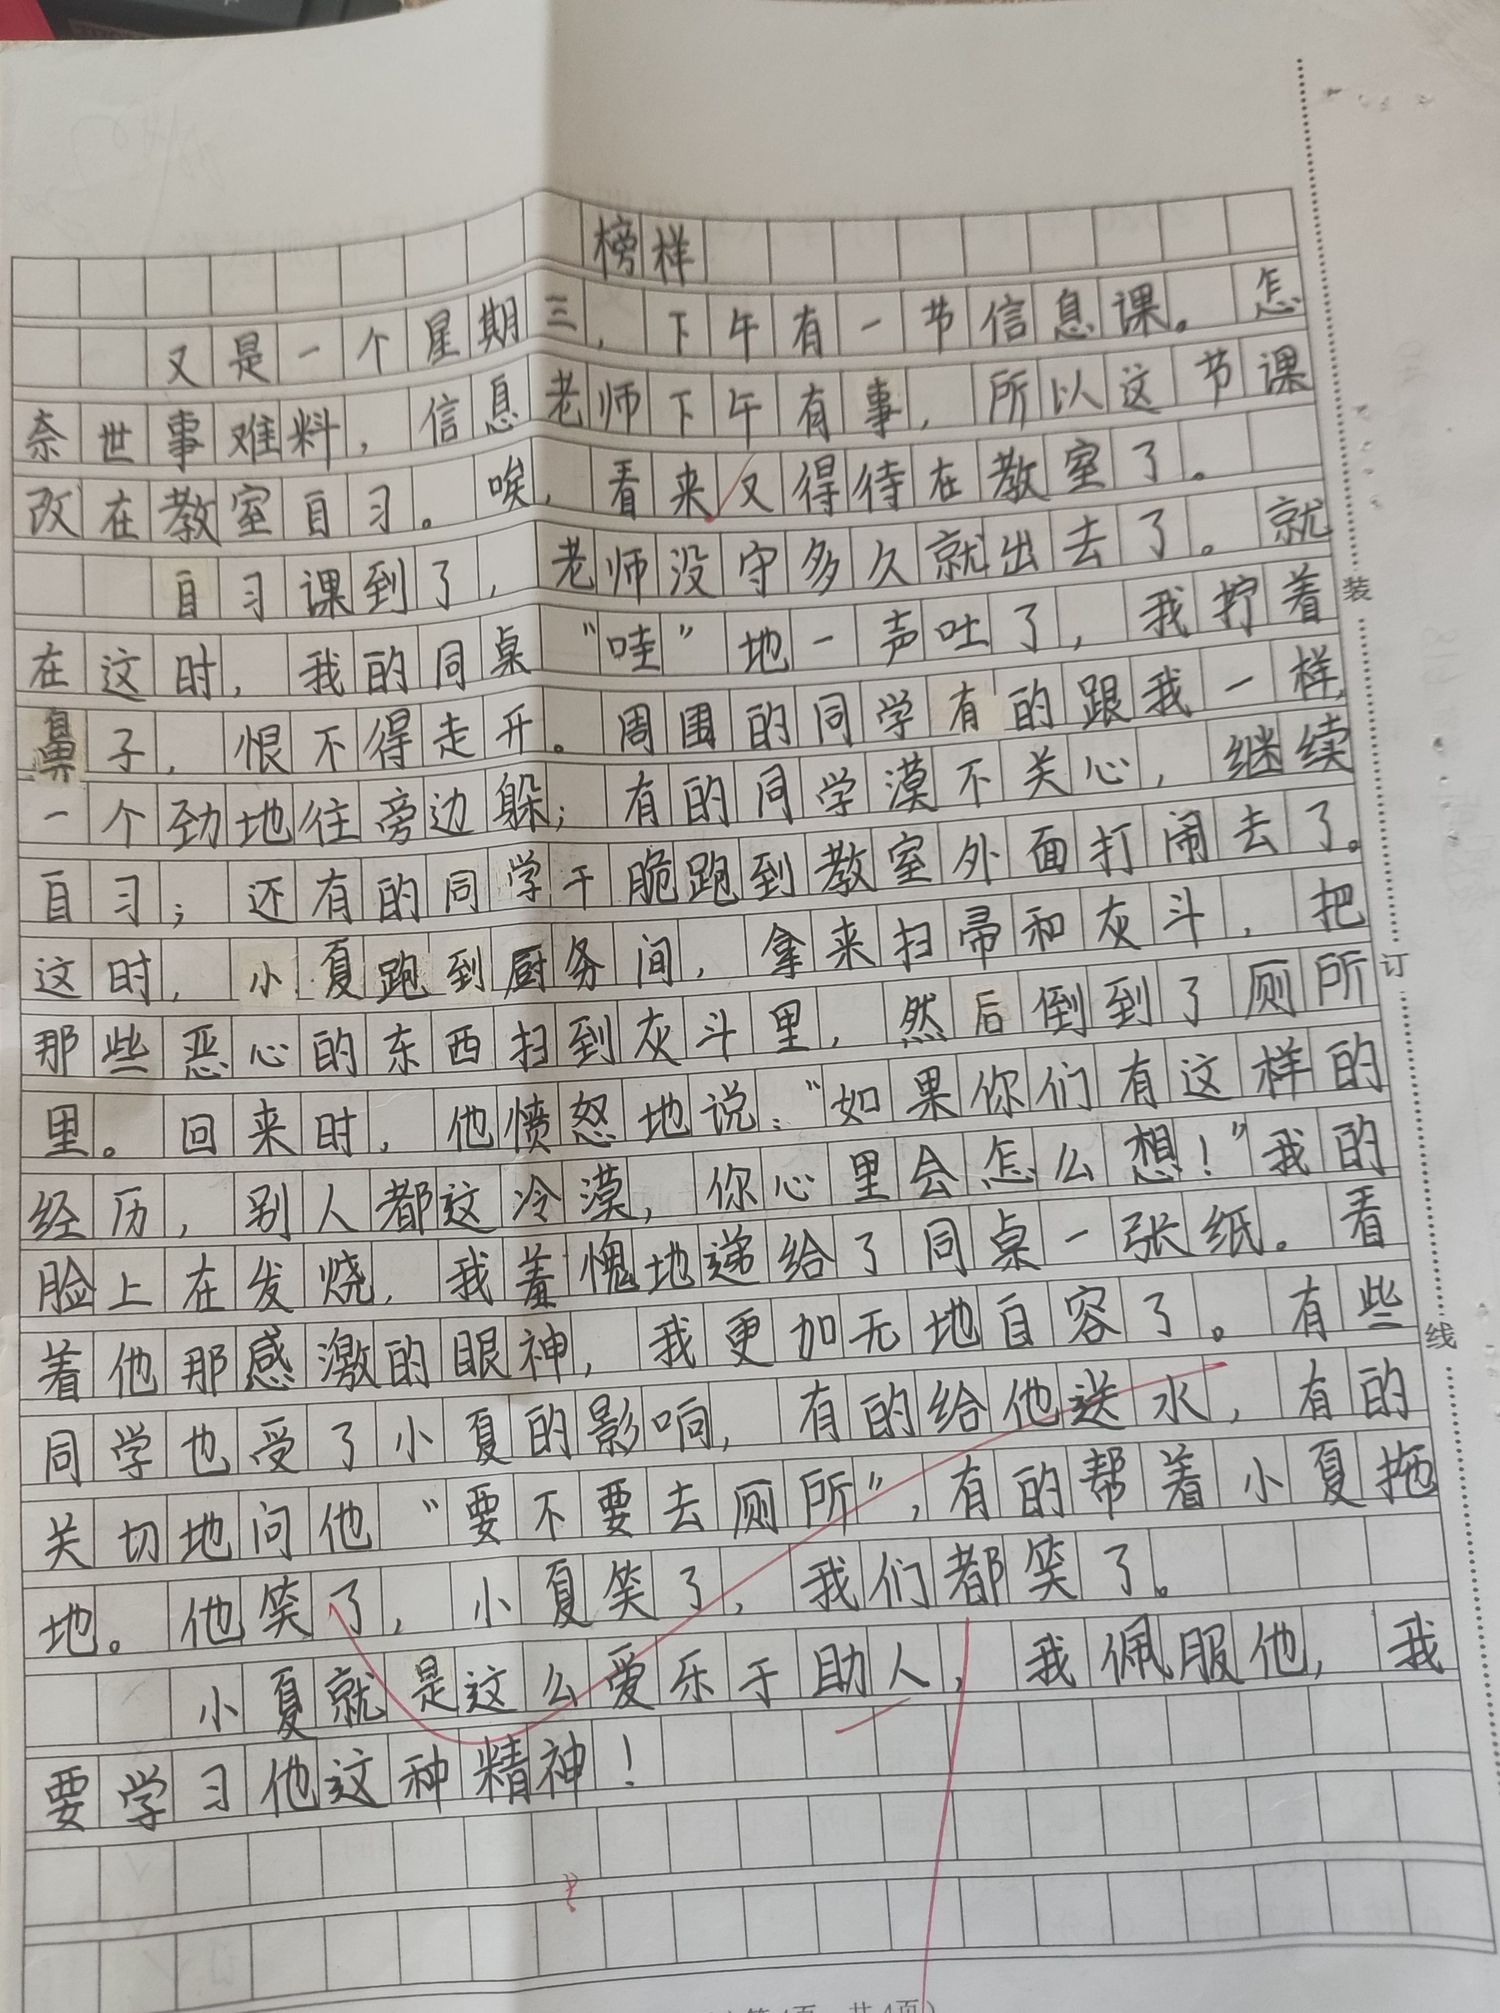 榜样
又是一个星期三，下午有一节信息课。怎
奈世事难料，信息老师下午有事，所以这节课
改在教室自习。唉，看来又得待在教室了。
自习课到了，老师没守多久就出去了。就
在这时，我的同桌“哇”地一声吐了，我拧着
鼻子，恨不得走开。周围的同学有的跟我一样，
一个劲地往旁边躲；有的同学漠不关心，继续
自习；还有的同学干脆跑到教室外面打闹去了。
这时，小夏跑到厨务间，拿来扫帚和灰斗，把
那些恶心的东西扫到灰斗里，然后倒到了厕所
里。回来时，他愤怒地说：“如果你们有这样的
经历，别人都这冷漠，你心里会怎么想！”我的
脸上在发烧，我羞愧地递给了同桌一张纸。看
着他那感激的眼神，我更加无地自容了。有些
同学也受了小夏的影响，有的给他送水，有的
关切地问他“要不要去厕所”，有的帮着小夏拖
地。他笑了，小夏笑了，我们都笑了。
小夏就是这么爱乐于助人，我佩服他，我
要学习他这种精神！
装
订
线